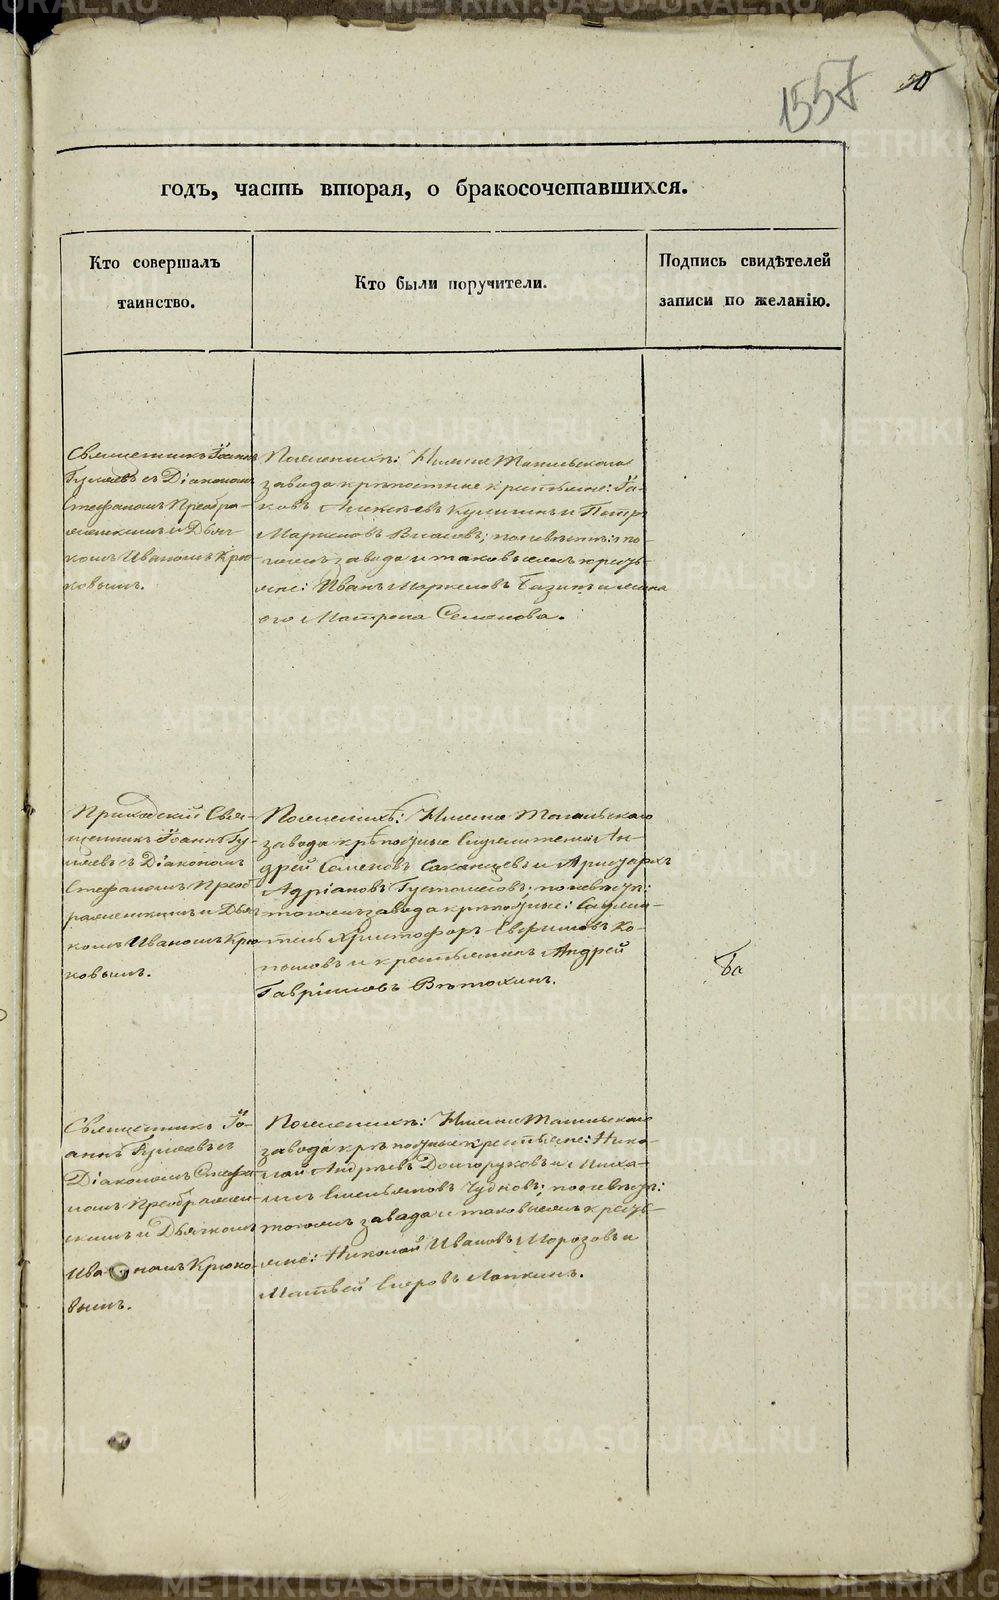 1557
50
годъ, часть вторая, о бракосочетавшихся.
Кто совершалъ
таинство.
Кто были поручители.
Подпись свидѣтелей
записи по желанію.
Священникъ Іоаннъ
съ Діакономъ
Стефаномъ Преобра-
женскимъ и Дьяч-
комъ Иваномъ Крю-
ковымъ.
Поженихѣ: Нижне Тагильскаго
завода крѣпостные крестьяне: Іа-
ковъ Алексѣевъ Кулигинъ и Петръ
Маркеловъ Власовъ; поневѣстѣ: то-
гожъ завода и таковыежъ кресть-
яне: Иванъ Маркеловъ и жена
его Матрона Семенова.
Приходскій Свя-
щенникъ Іоаннъ
съ Діакономъ
Стефаномъ Преоб-
раженскимъ и Дьяч-
комъ Иваномъ Крю-
ковымъ.
Поженихѣ: Нижне Тагильскаго
завода крѣпостные Служители Ан-
дрей Семеновъ и Аристархъ
Адріановъ Густомесовъ; поневѣст:
тогожъ завода крѣпостные: Служи-
тель Христофоръ Евфимовъ Ко-
пыловъ и крестьянинъ Андрей
Гавріиловъ Вѣтохинъ.
Священникъ Іо-
аннъ съ
Діакономъ Стефа-
номъ Преображен-
скимъ и Дьячкомъ
Иваномъ Крюко-
вымъ.
Поженихѣ: Нижне Тагильскаго
завода крѣпостные крестьяне: Нико-
лай Андреевъ Долгоруковъ и Миха-
илъ Емельяновъ Чудковъ; поневѣст:
тогожъ завода и таковыежъ кресть-
яне: Николай Ивановъ Морозовъ и
Матвей Егоровъ Лапкинъ.
METRIKI.GASO-URAL.RU